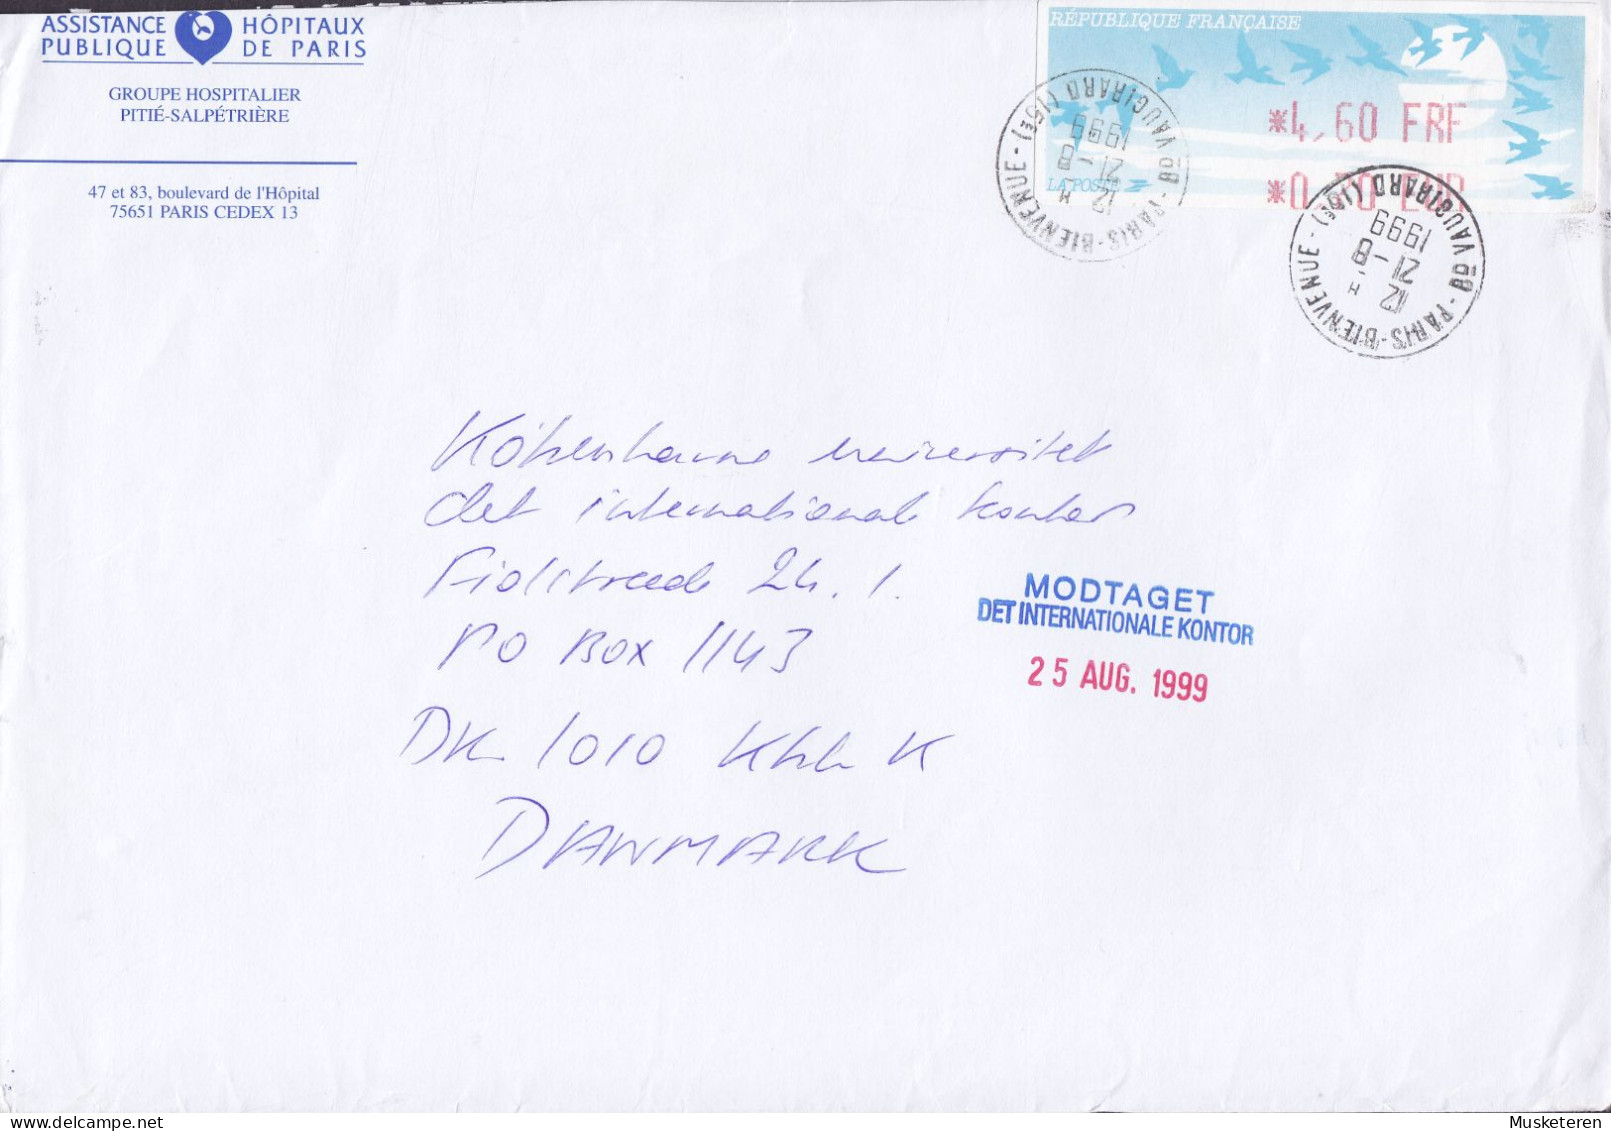 ASSISTANCE HÔPITAUX
PUBLIQUE DE PARIS
GROUPE HOSPITALIER
PITIÉ-SALPÉTRIÈRE
47 et 83, boulevard de l'Hôpital
75651 PARIS CEDEX 13
RÉPUBLIQUE FRANÇAISE
*4,60 FRF
*0,70 EUR
LA POSTE
PARIS-BIENVENUE - (15E) Bd VAUGIRARD
12 H
21-8
1999
PARIS-BIENVENUE - (15E) Bd VAUGIRARD
12 H
21-8
1999
Köbenhavns universitet
det internationale kontor
Fiolstraede 24. 1.
PO Box 1143
DK 1010 Kbh K
DANMARK
MODTAGET
DET INTERNATIONALE KONTOR
25 AUG. 1999
Musketeren